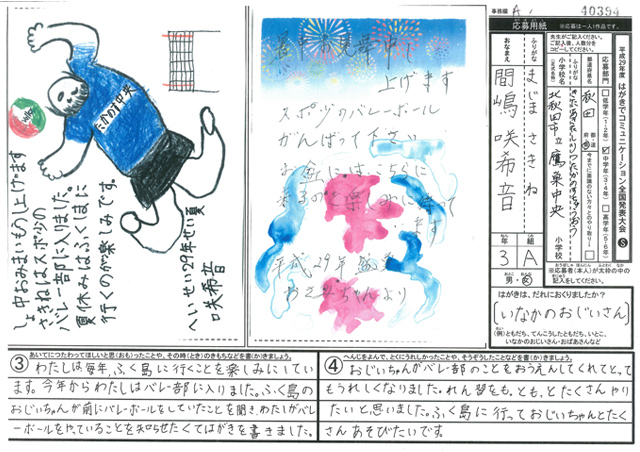 事務局 A
40394
応募用紙
※応募は一人1作品です。
平成29年度 はがきでコミュニケーション全国発表大会
応募部門
低学年(1・2年)
中学年(3・4年)
高学年(5・6年)
秋田
北秋田市立鷹巣中央
小学校
ふりがな
まじま さきね
おなまえ
間嶋 咲希音
3年
A組
男・女
※応募者(本人)が太枠の中の記入をしてください。
はがきは、だれにおくりましたか?
いなかのおじいさん
(例)ともだち、てんこうしたともだち、いとこ、
いなかのおじいさん・おばあさんなど
暑中お見舞申し
上げます
スポ少のバレーボール
がんばって下さい
平成29年 盛夏
たかのす中央
しょ中おみまいもうし上げます
さきねはスポ少の
バレー部に入りました。
夏休みはふくしまに
行くのが楽しみです。
へいせい29年せい夏
咲希音
③ あいてにつたわってほしいと思(おも)ったことや、その時(とき)のきもちなどを書(か)きましょう。
わたしは毎年、ふく島に行くことを楽しみにしてい
ます。今年からわたしはバレー部に入りました。ふく島の
おじいちゃんが前にバレーボールをしていたことを聞き、わたしがバレ
ーボールをやっていることを知らせたくてはがきを書きました。
④ へんじをよんで、とくにうれしかったことや、そうぞうしたことなどを書(か)きましょう。
おじいちゃんがバレー部のことをおうえんしてくれてとっても
うれしくなりました。れん習をもっともっとたくさんやり
たいと思いました。ふく島に行っておじいちゃんとたく
さんあそびたいです。